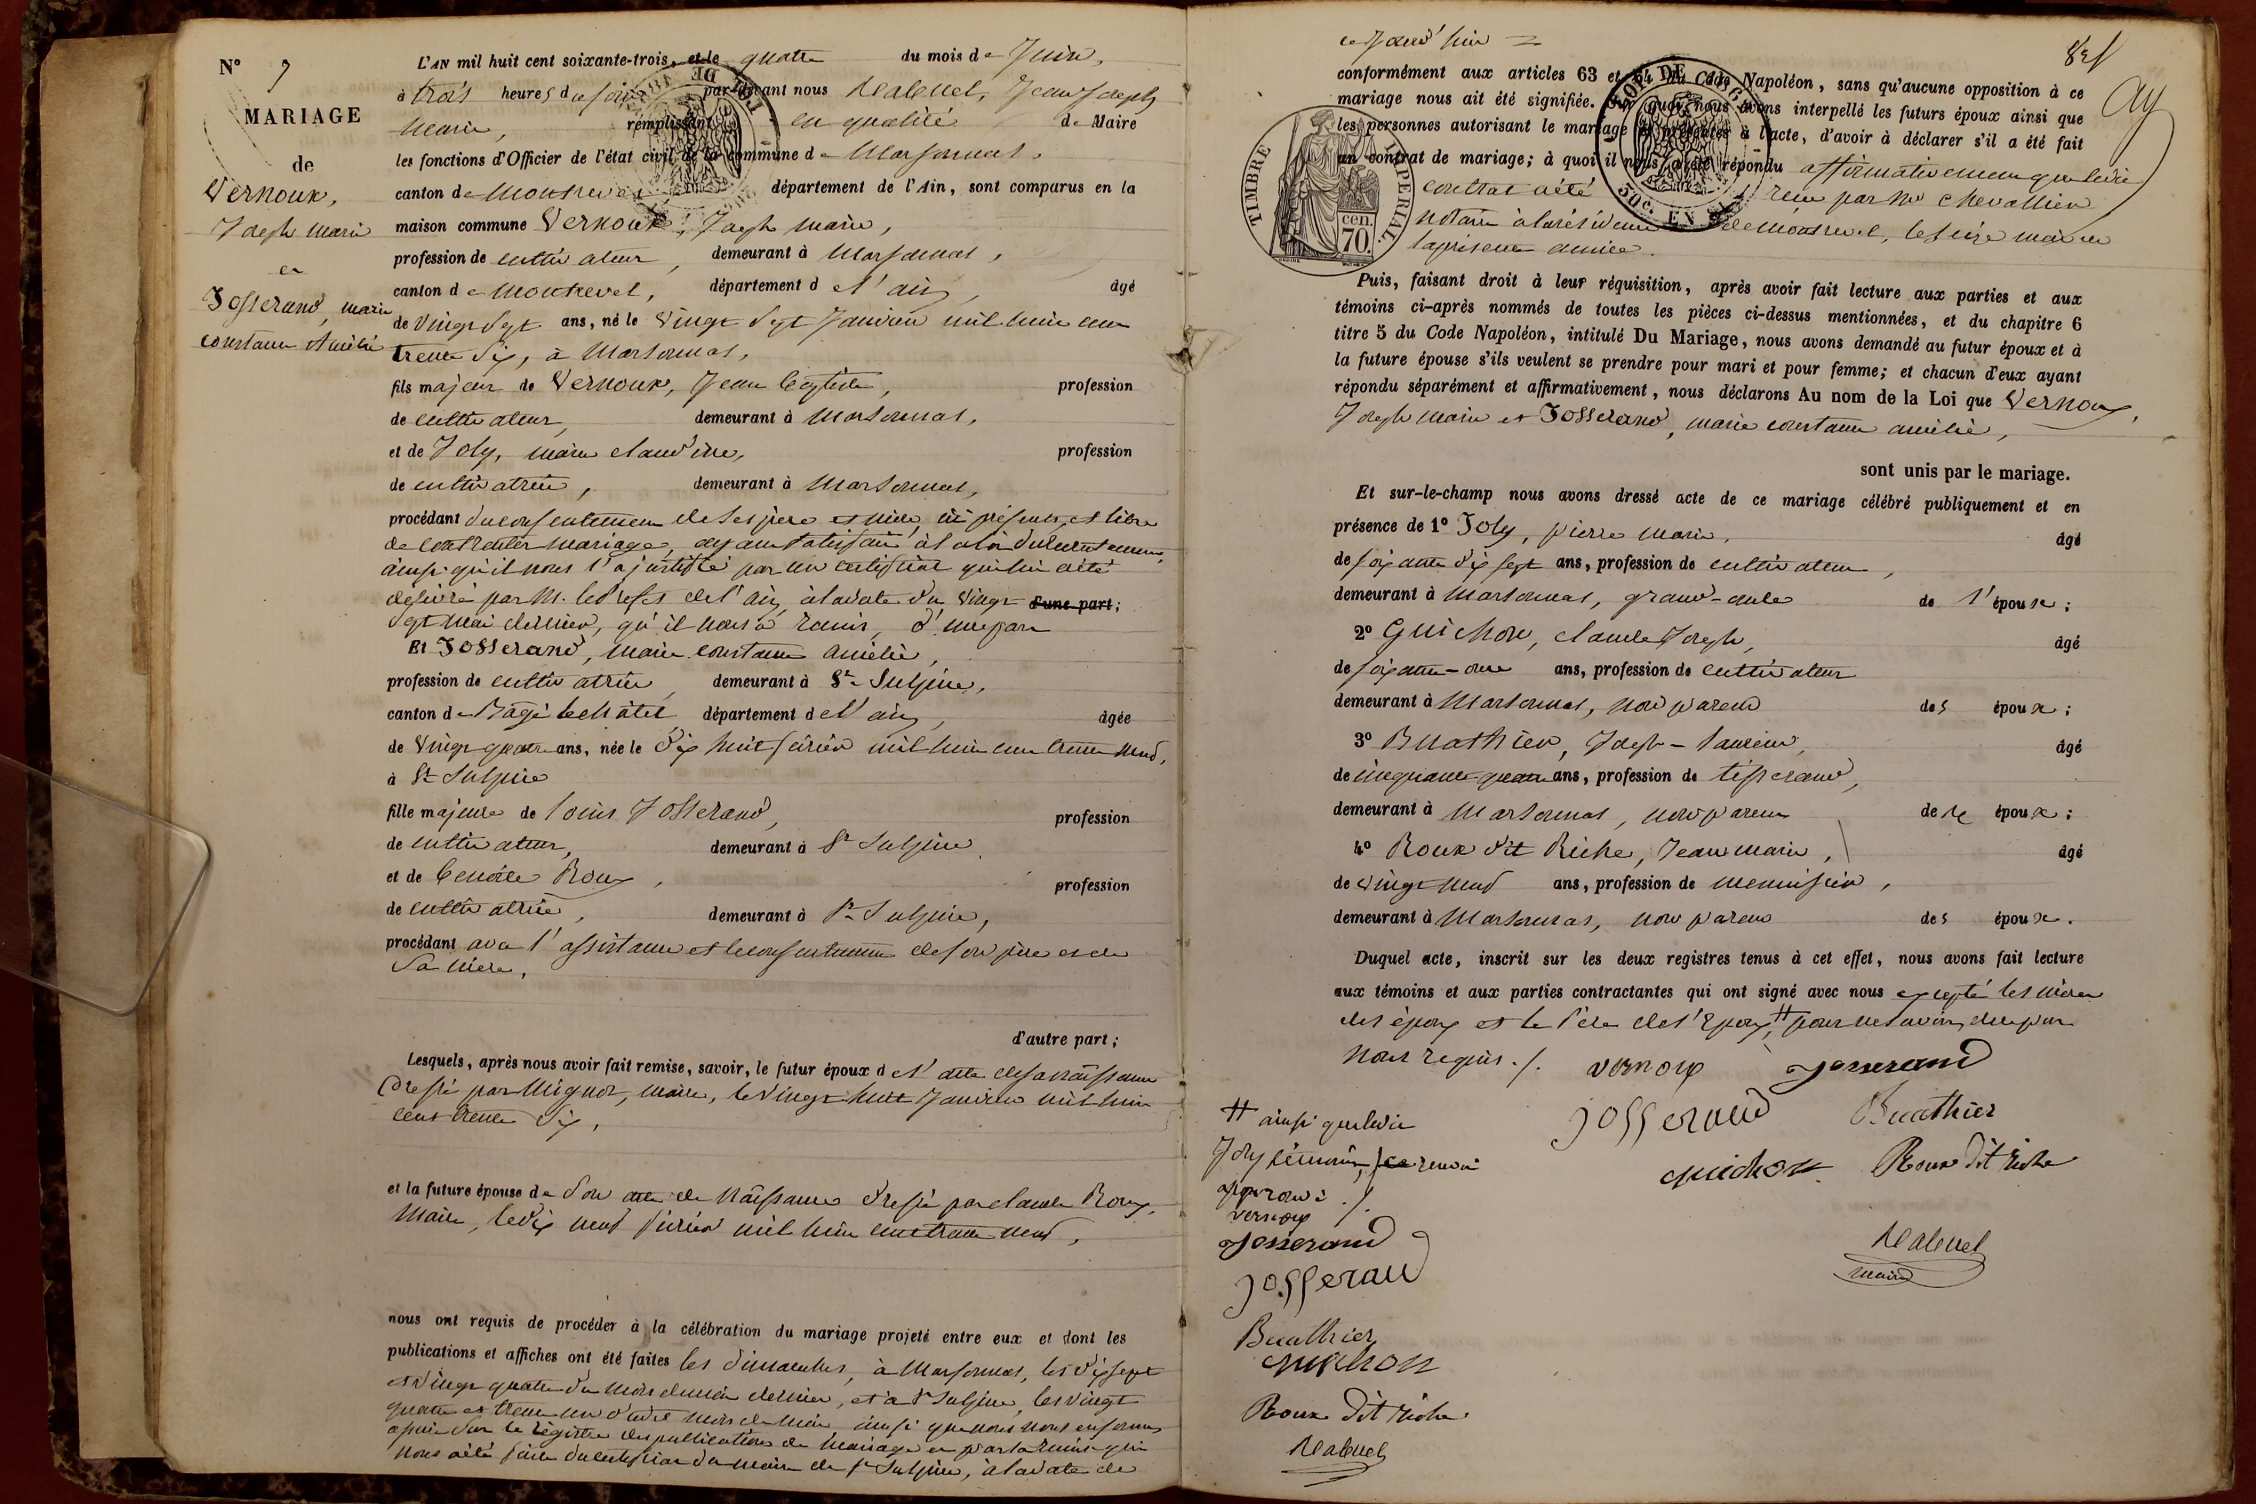 N° 7
MARIAGE
de
Vernoux,
Joseph Marie
et
Josserand, marie
constance Amélie
L'AN mil huit cent soixante-trois, et le quatre du mois de Juin,
à trois heures du soir par-devant nous Rabuel, Jean Joseph
Marie, remplissant en qualité de Maire
les fonctions d'Officier de l'état civil de la commune de Marsonnas,
canton de Montrevel département de l'Ain, sont comparus en la
maison commune Vernoux, Joseph marie,
profession de cultivateur, demeurant à Marsonnas,
canton de Montrevel, département de l'ain, âgé
de Vingt Sept ans, né le Vingt Sept Janvier mil huit cent
trente Six, à Marsonnas,
fils majeur de Vernoux, Jean Baptiste, profession
de cultivateur, demeurant à Marsonnas,
et de Joly, marie claudine, profession
de cultivatrice, demeurant à Marsonnas,
procédant du consentement de Ses père et mère, ici présents, et libre
de contracter mariage, ayant Satisfait à la loi du recrutement
ainsi qu'il nous l'a justifié par un certificat qui lui a été
délivré par M. le Préfet de l'ain, à la date du Vingt d'une part;
Sept mai dernier, qu'il nous a remis, d'une part
Et Josserand, marie constance amélie,
profession de cultivatrice, demeurant à St Sulpice,
canton de Bâgé le Châtel département de l'ain, âgée
de Vingt quatre ans, née le Dix huit février mil huit cent trente neuf,
à St Sulpice
fille majeure de Louis Josserand, profession
de cultivateur, demeurant à St Sulpice
et de Benoite Roux, profession
de cultivatrice, demeurant à St Sulpice,
procédant avec l'assistance et le consentement de son père et de
Sa mère,
d'autre part;
Lesquels, après nous avoir fait remise, savoir, le futur époux de l'acte de sa naissance
Dressé par Mignot, maire, le Vingt huit Janvier mil huit
cent trente Six,
et la future épouse de Son acte de Naissance Dressé par claude Roux,
Maire, le dix neuf février mil huit cent trente neuf,
nous ont requis de procéder à la célébration du mariage projeté entre eux et dont les
publications et affiches ont été faites les dimanches, à Marsonnas, les dix sept
et vingt quatre du mois de mai dernier, et à St Sulpice, les vingt
quatre et trente un dudit mois de mai, ainsi que nous nous en sommes
assuré Sur le registre des publications de mariage et par la remise qui
nous a été faite du certificat du maire de St Sulpice, à la date de
ce jourd'hui
conformément aux articles 63 et 64 du Code Napoléon, sans qu'aucune opposition à ce
mariage nous ait été signifiée. Sur quoi, nous avons interpellé les futurs époux ainsi que
les personnes autorisant le mariage et présentes à l'acte, d'avoir à déclarer s'il a été fait
un contrat de mariage; à quoi il nous a été répondu affirmativement que ledit
contrat a été reçu par Me Chevallier
notaire à la résidence de Montrevel, le seize mai de
la présente année.
TIMBRE IMPERIAL
70 cen.
50c. EN SUS
Puis, faisant droit à leur réquisition, après avoir fait lecture aux parties et aux
témoins ci-après nommés de toutes les pièces ci-dessus mentionnées, et du chapitre 6
titre 5 du Code Napoléon, intitulé Du Mariage, nous avons demandé au futur époux et à
la future épouse s'ils veulent se prendre pour mari et pour femme; et chacun d'eux ayant
répondu séparément et affirmativement, nous déclarons Au nom de la Loi que Vernoux,
Joseph Marie et Josserand, marie constance amélie,
sont unis par le mariage.
Et sur-le-champ nous avons dressé acte de ce mariage célébré publiquement et en
présence de 1° Joly, pierre marie, âgé
de soixante dix sept ans, profession de cultivateur,
demeurant à Marsonnas, grand-oncle de l'époux;
2° Guichon, claude Joseph, âgé
de soixante-onze ans, profession de cultivateur
demeurant à Marsonnas, non parent des époux;
3° Buathier, Joseph-Laurent, âgé
de cinquante quatre ans, profession de tisserand,
demeurant à Marsonnas, non parent des époux;
4° Roux dit Riche, Jean marie, âgé
de vingt neuf ans, profession de menuisier,
demeurant à Marsonnas, non parent des époux.
Duquel acte, inscrit sur les deux registres tenus à cet effet, nous avons fait lecture
aux témoins et aux parties contractantes qui ont signé avec nous excepté les mères
des époux et le Père de l'époux, # pour ne savoir, de ce par
nous requis ./.
vernoux Josserand
Josserand Buathier
guichon Roux dit Riche
Rabuel
maire
# ainsi que ledit
Joly témoin, ce renvoi
approuvé ./.
vernoux
Josserand
Josserand
Buathier
guichon
Roux dit riche
Rabuel